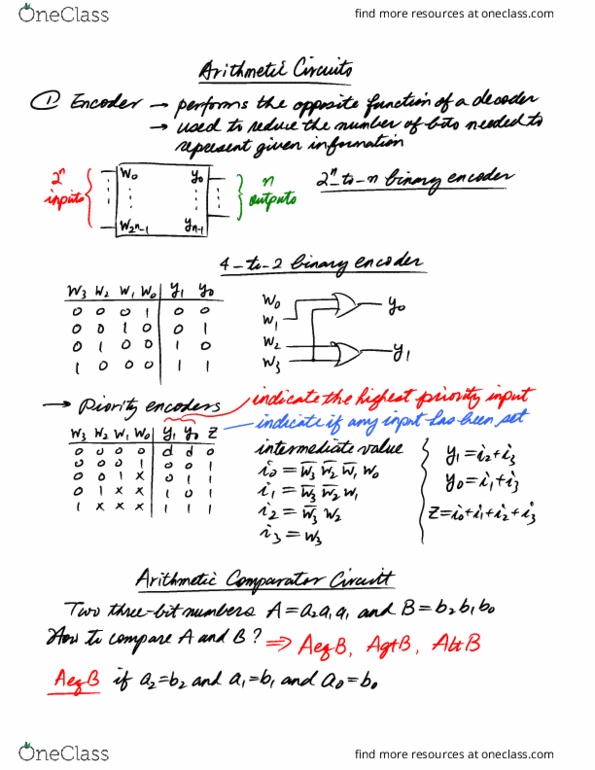 OneClass find more resources at oneclass.com
Arithmetic Circuits
① Encoder → performs the opposite function of a decoder
→ used to reduce the number of bits needed to
represent given information
2ⁿ inputs { w₀ y₀ } n outputs
w₂ⁿ₋₁ yₙ₋₁
2ⁿ-to-n binary encoder
4-to-2 binary encoder
w₃ w₂ w₁ w₀ | y₁ y₀
0 0 0 1 | 0 0
0 0 1 0 | 0 1
0 1 0 0 | 1 0
1 0 0 0 | 1 1
w₀
w₁
w₂
w₃
y₀
y₁
→ Priority encoders
indicate the highest priority input
indicate if any input has been set
w₃ w₂ w₁ w₀ | y₁ y₀ z
0 0 0 0 | d d 0
0 0 0 1 | 0 0 1
0 0 1 x | 0 1 1
0 1 x x | 1 0 1
1 x x x | 1 1 1
intermediate value
i₀ = w̅₃ w̅₂ w̅₁ w₀
i₁ = w̅₃ w̅₂ w₁
i₂ = w̅₃ w₂
i₃ = w₃
y₁ = i₂ + i₃
y₀ = i₁ + i₃
z = i₀ + i₁ + i₂ + i₃
Arithmetic Comparator Circuit
Two three-bit numbers A = a₂a₁a₁ and B = b₂b₁b₀
How to compare A and B? ⇒ AeqB, AgtB, AltB
AeqB if a₂=b₂ and a₁=b₁ and a₀=b₀
OneClass find more resources at oneclass.com